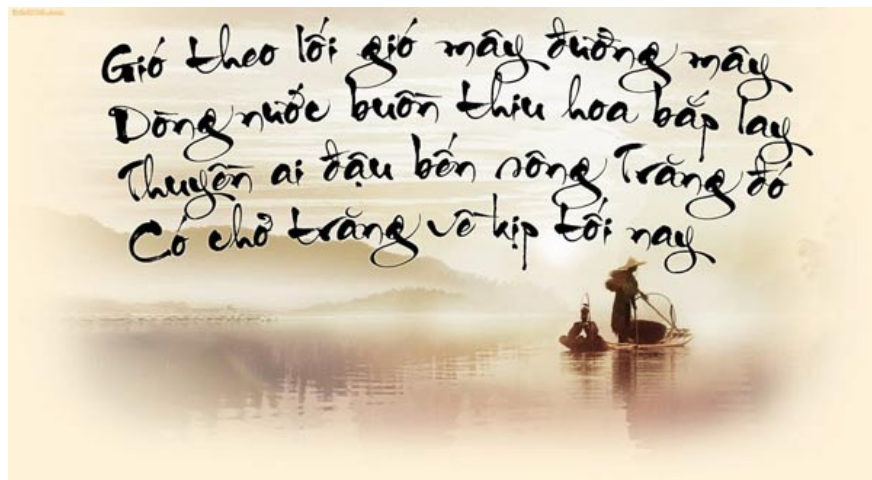 Gió theo lối gió mây đường mây
Dòng nước buồn thiu hoa bắp lay
Thuyền ai đậu bến sông Trăng đó
Có chở trăng về kịp tối nay